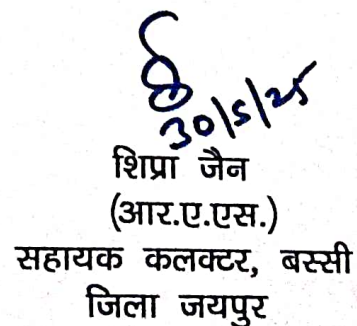 30/5/25
शिप्रा जैन
(आर.ए.एस.)
सहायक कलक्टर, बस्सी
जिला जयपुर